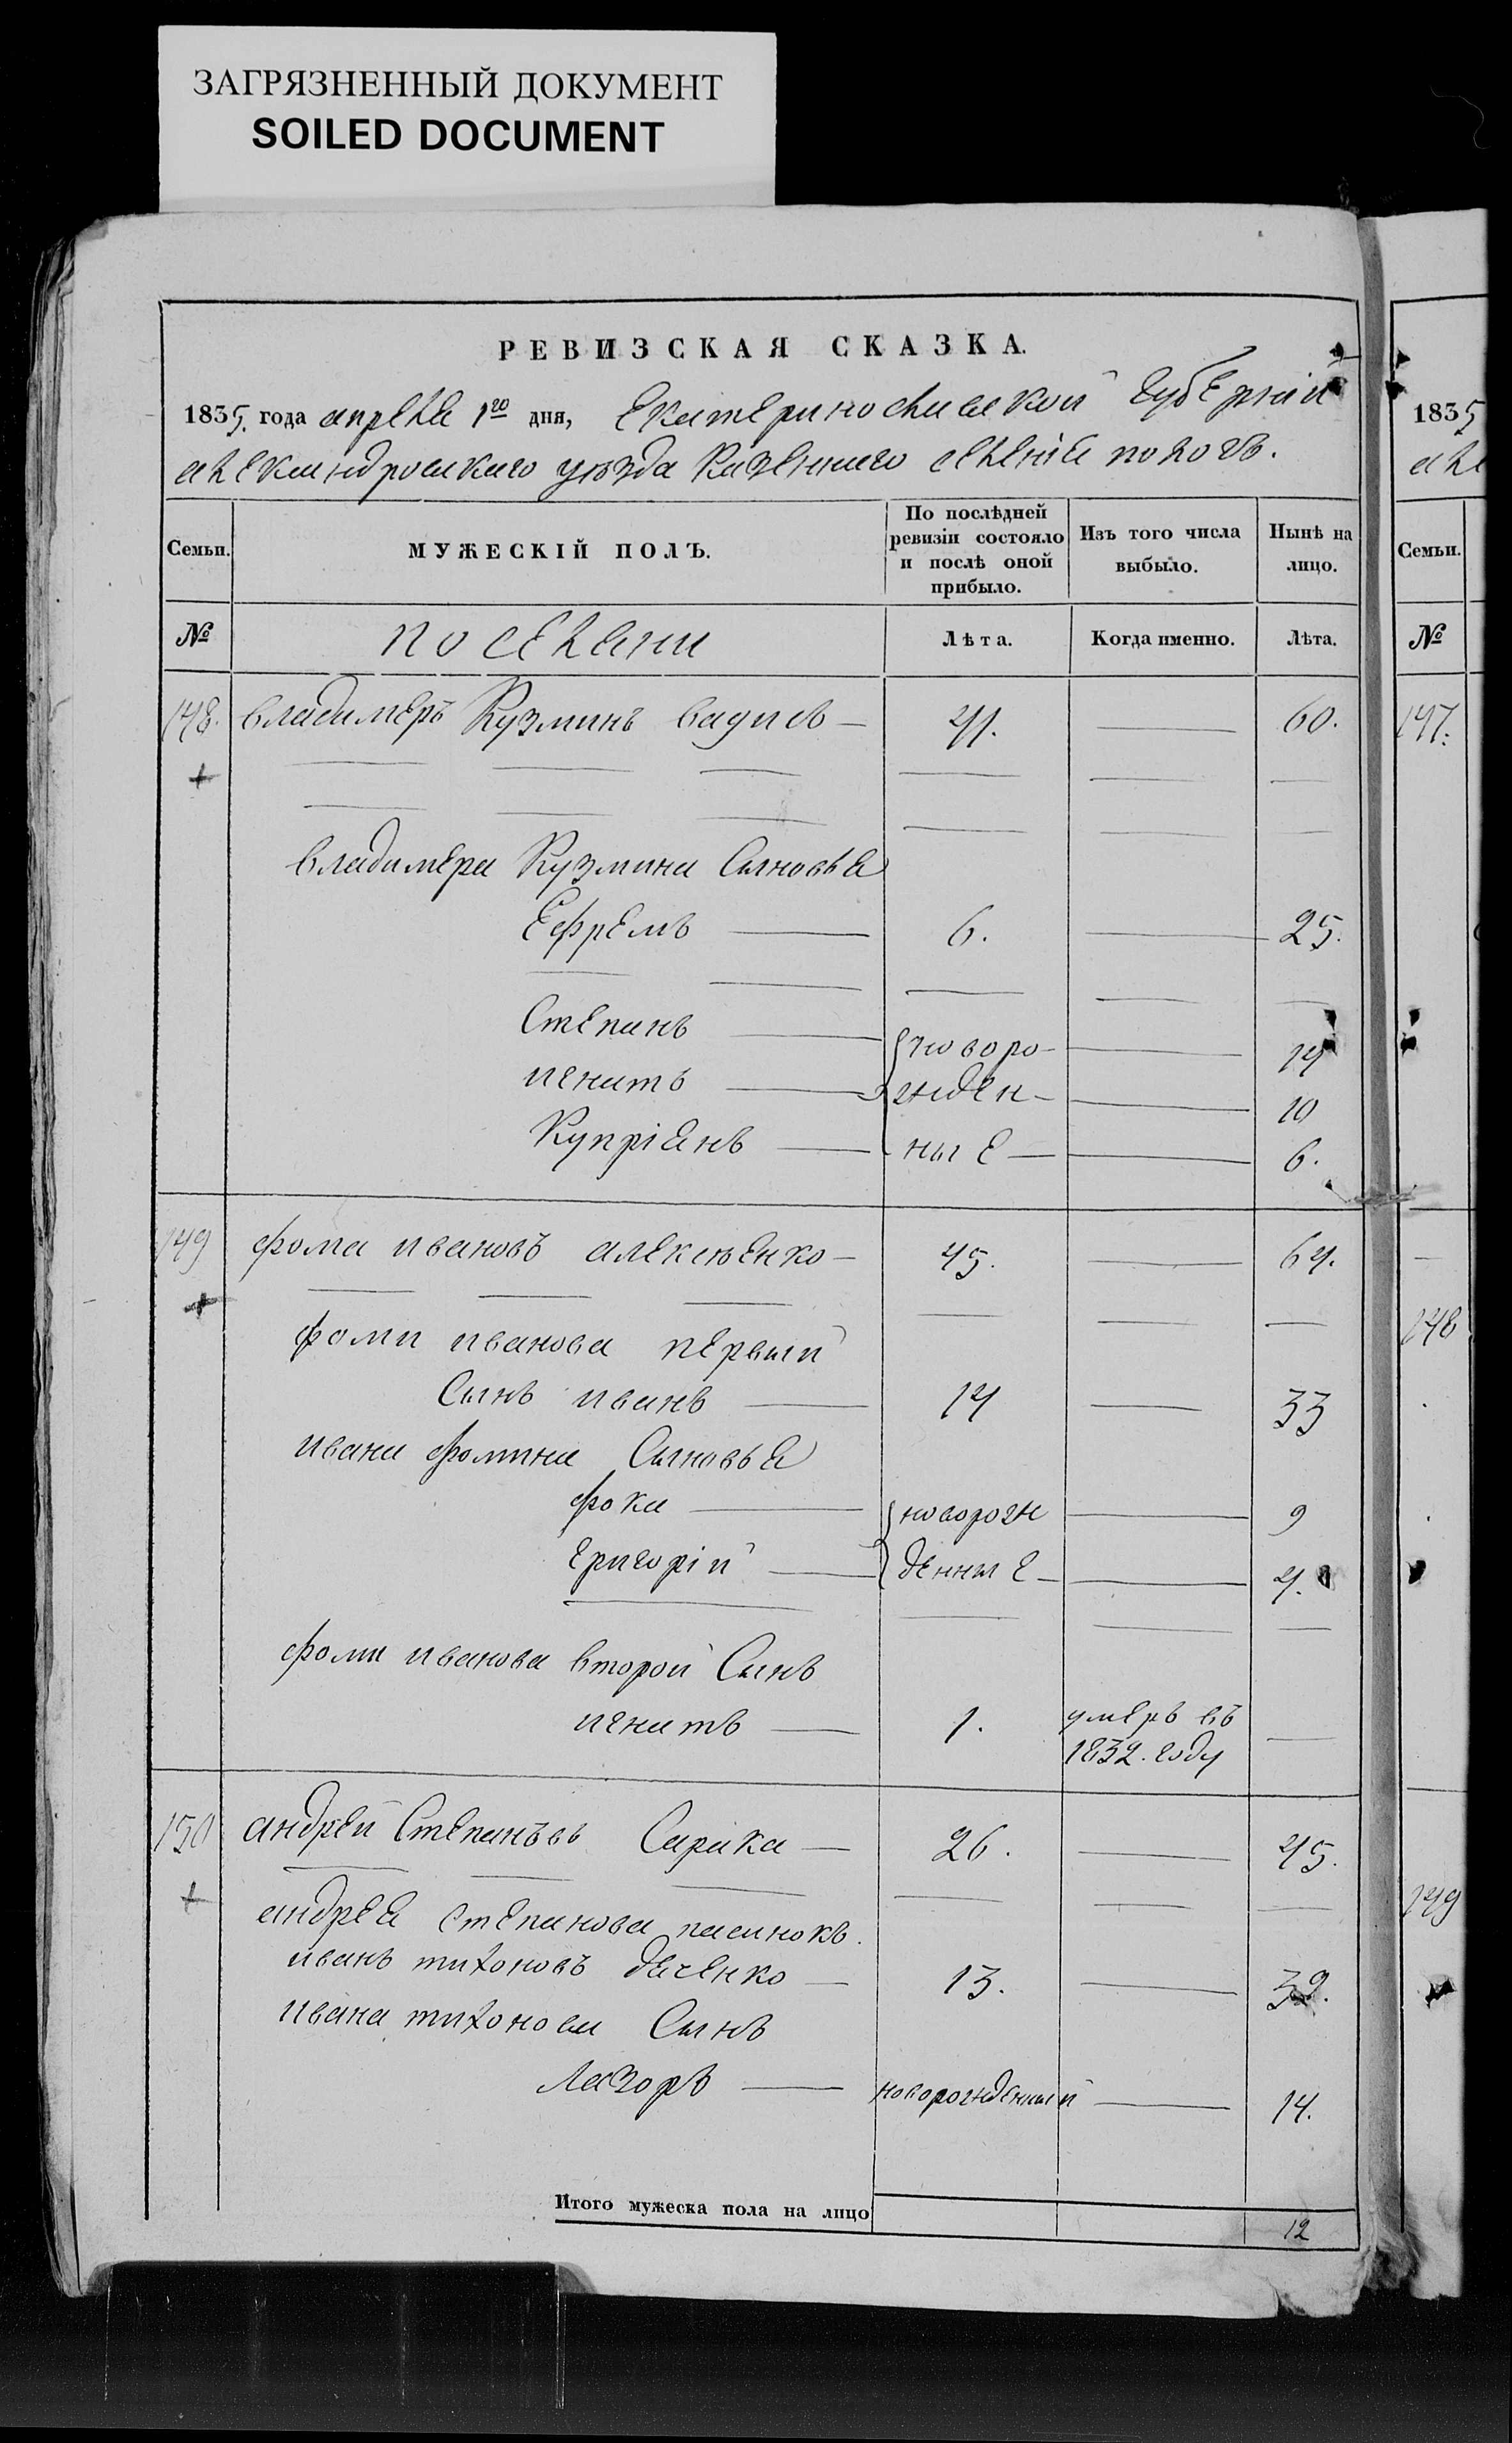 ЗАГРЯЗНЕННЫЙ ДОКУМЕНТ
SOILED DOCUMENT
РЕВИЗСКАЯ СКАЗКА.
1835. года апреля 1го дня, Екатеринославской губернiи
александровскаго уѣзда казеннаго селенiя пологъ.
Семьи.
МУЖЕСКІЙ ПОЛЪ.
По послѣдней ревизіи состояло и послѣ оной прибыло.
Изъ того числа выбыло.
Нынѣ на лицо.
№
поселяни
Лѣта.
Когда именно.
Лѣта.
148. владимеръ Кузминъ 41. 60.
владимера Кузмина Сыновья
Ефремъ 6. 25.
Степанъ новоро- 14
игнатъ жден- 10
Купрiянъ ные 6.
149 фома ивановъ алексѣенко 45. 64.
фомы иванова первый
Сынъ иванъ 14 33
ивана фомина Сыновья
фока новорож 9
григорiй денные 4.
фомы иванова второй Сынъ
игнатъ 1. умеръ въ
1832. году
150 андрей Степановъ Сирика 26. 45.
андрея степанова пасинокъ.
иванъ тихоновъ дяченко 13. 32.
ивана тихонова Сынъ
Лазоръ новорожденный 14.
Итого мужеска пола на лицо 12
1835
Семьи.
№
147.
148
149